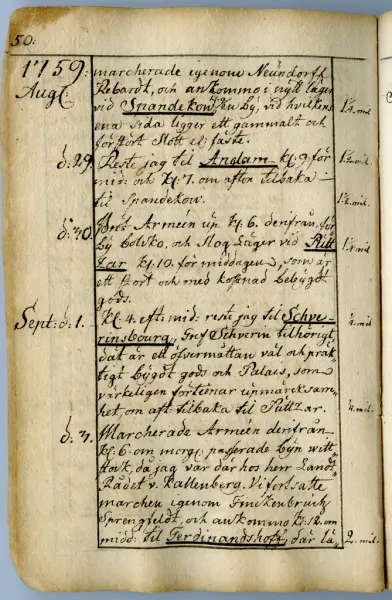 50:
1759: marcherade igenom Neündorff,
Aug: Rebardt, och ankommo i nytt läger
vid Spandekow, en by, vid hvilkens 1¼ mil
ena sida ligger ett gammalt och
förstört Slott el: fäste.
d: 29. Rest jag til Anclam kl: 9. för 1½ mil.
mid: och kl: 7. om afton tilbaka
til Spandekow. 1½ mil.
d: 30. Bröt Arméen up kl: 6. denfrån, för
by Bolsko, och slog Läger vid Pütt 1¼ mil
zar kl: 10. för middagen, som är
ett stort och med kostnad bebygdt
gods.
Sept: d: 1. Kl: 4. eft: mid: reste jag til Schwe- ¼ mil.
rinsbourg, Gref Schverin tilhörigt,
dät är ett öfvermåttan väl och präk-
tigt bygdt gods och Palais, som
värkeligen förtienar upmärksam-
het, om aft: tilbaka til Püttzar. ¼ mil.
d: Marcherade Arméen denfrån
kl: 6. om morg: passerade Byn Witt
stock, då jag var där hos herr Landt
Rådet v. Rattenberg. Vi fortsatte
marchen igenom Finckenbrück
Sprengfeldt, och ankommo kl: 12. om
midd: til Ferdinandshoff, där lä- 2. mil.